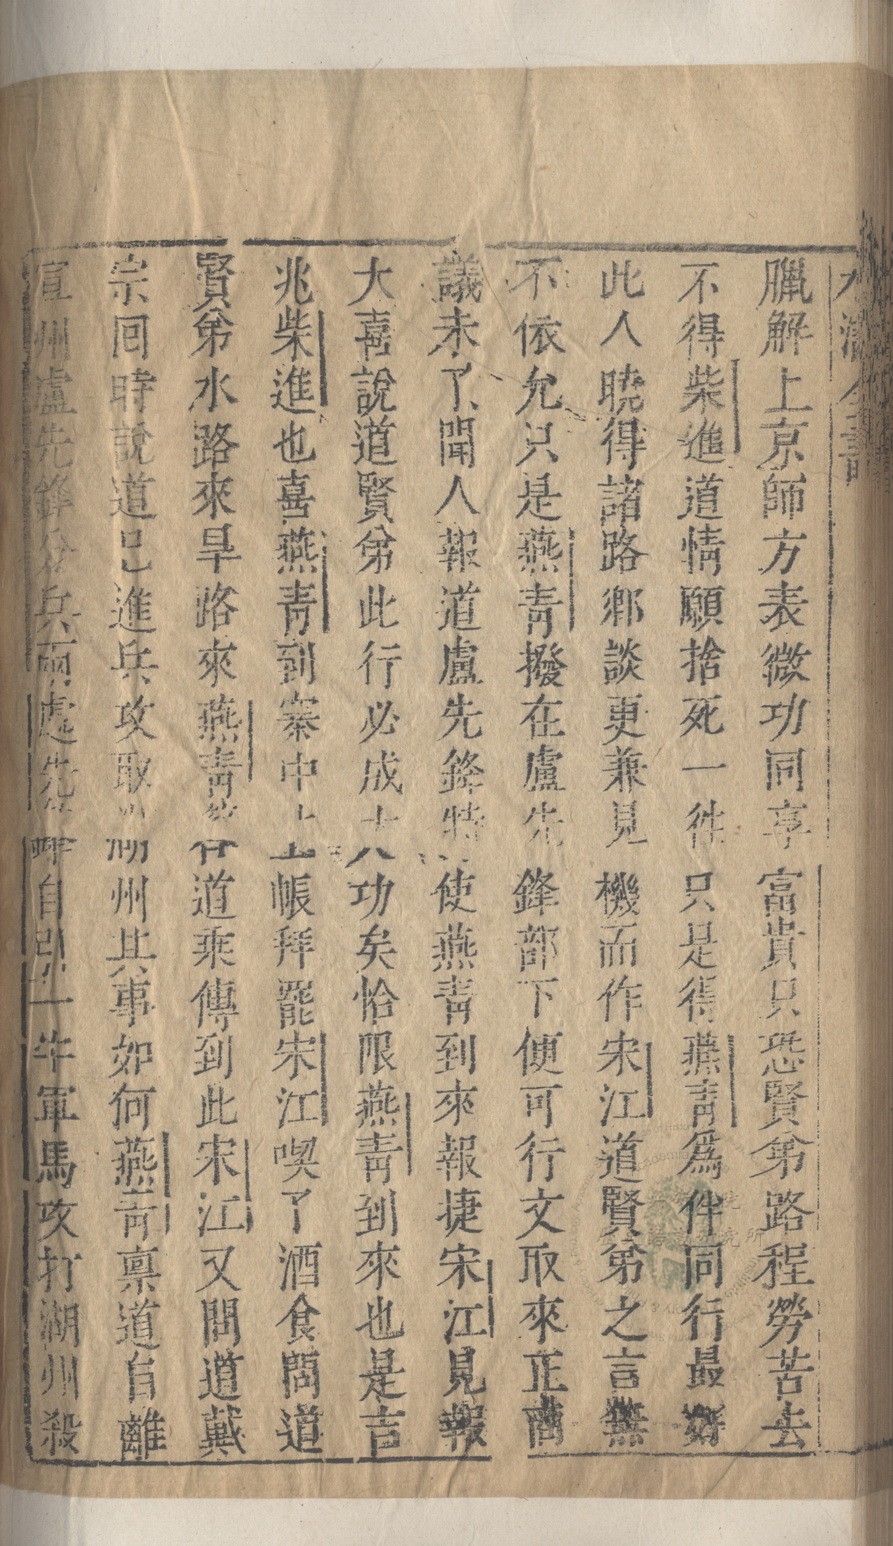 水滸全書
臘解上京師方表微功同享富貴只恐賢弟路程勞苦去
不得柴進道情願捨死一往只是得燕青爲伴同行最好
此人曉得諸路鄕談更兼見機而作宋江道賢弟之言無
不依允只是燕青撥在盧先鋒部下便可行文取來正商
議未了聞人報道盧先鋒特使燕青到來報捷宋江見報
大喜說道賢弟此行必成大功矣恰限燕青到來也是吉
兆柴進也喜燕青到寨中上帳拜罷宋江喫了酒食問道
賢弟水路來旱路來燕青答道乘傳到此宋江又問道戴
宗回時說道已進兵攻取湖州其事如何燕青禀道自離
宣州盧先鋒分兵兩處先鋒自引一半軍馬攻打湖州殺